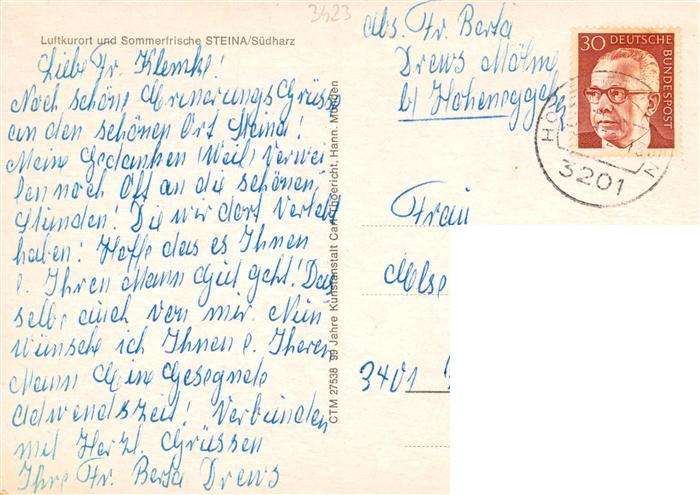 3423
Luftkurort und Sommerfrische STEINA/Südharz
Liebe Fr. Klemke!
Noch schöne Erinerungs Grüsse
an den schönen Ort Steina!
Meine Gedanken (Weil) Verwei
len noch Oft an die schönen
Stunden! Die wir dort Verlebt
haben! Hoffe das es Ihnen
u. Ihren Mann Gut geht! Das
selbe auch von mir. Nun
wünsche ich Ihnen u. Iheren
Mann Eine Gesegnete
Adwendszeit! Verbunden
mit Herzl. Grüssen
Ihre Fr. Berta Drews
CTM 27538 99 Jahre Kunstanstalt Carl Thoericht, Hann. Münden
Abs. Fr. Berta
Drews Mölme
b/ Hoheneggels
30 DEUTSCHE
BUNDESPOST
HO
N
3201
Frau
Else
3401